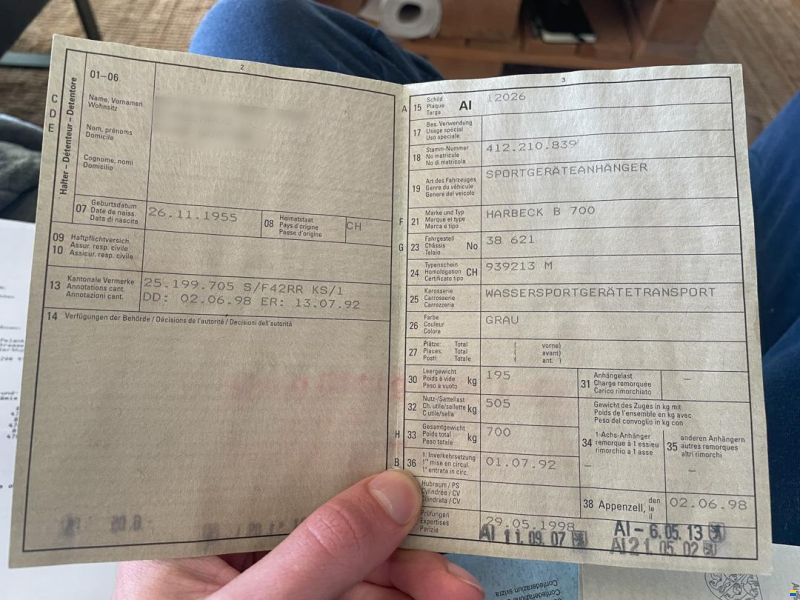 2
01–06
C
D
E
Halter – Détenteur – Detentore
Name, Vornamen
Wohnsitz
Nom, prénoms
Domicile
Cognome, nomi
Domicilio
07 Geburtsdatum
Date de naiss.
Data di nascita
26.11.1955
08 Heimatstaat
Pays d'origine
Paese d'origine
CH
09 Haftpflichtversich.
10 Assur. resp. civile
Assicur. resp. civile
13 Kantonale Vermerke
Annotations cant.
Annotazioni cant.
25.199.705 S/F42RR KS/1
DD: 02.06.98 ER: 13.07.92
14 Verfügungen der Behörde / Décisions de l'autorité / Decisioni dell'autorità
3
A 15 Schild
Plaque
Targa
AI 12026
17 Bes. Verwendung
Usage spécial
Uso speciale
18 Stamm-Nummer
No matricule
No di matricola
412.210.839
19 Art des Fahrzeuges
Genre du véhicule
Genere del veicolo
SPORTGERÄTEANHÄNGER
F 21 Marke und Typ
Marque et type
Marca e tipo
HARBECK B 700
G 23 Fahrgestell
Châssis No
Telaio
38 621
24 Typenschein
Homologation CH
Certificato tipo
939213 M
25 Karosserie
Carrosserie
Carrozzeria
WASSERSPORTGERÄTETRANSPORT
26 Farbe
Couleur
Colore
GRAU
27 Plätze: Total ( vorne)
Places: Total ( avant)
Posti: Totale ( ant. )
30 Leergewicht
Poids à vide kg
Peso a vuoto
195
31 Anhängelast
Charge remorquée
Carico rimorchiato
–
32 Nutz-/Sattellast
Ch. utile/sellette kg
C utile/sella
505
Gewicht des Zuges in kg mit
Poids de l'ensemble en kg avec
Peso del convoglio in kg con
H 33 Gesamtgewicht
Poids total kg
Peso totale
700
34 1-Achs-Anhänger
remorque à 1 essieu
rimorchio a 1 asse
–
35 anderen Anhängern
autres remorques
altri rimorchi
–
B 36 1. Inverkehrsetzung
1re mise en circul.
1a entrata in circ.
01.07.92
Hubraum / PS
Cylindrée / CV
Cilindrata / CV
38 Appenzell, den
le
il
02.06.98
Prüfungen
Expertises
Perizie
29.05.1998
AI 11. 09. 07
AI – 6. 05. 13
AI 21. 05. 02